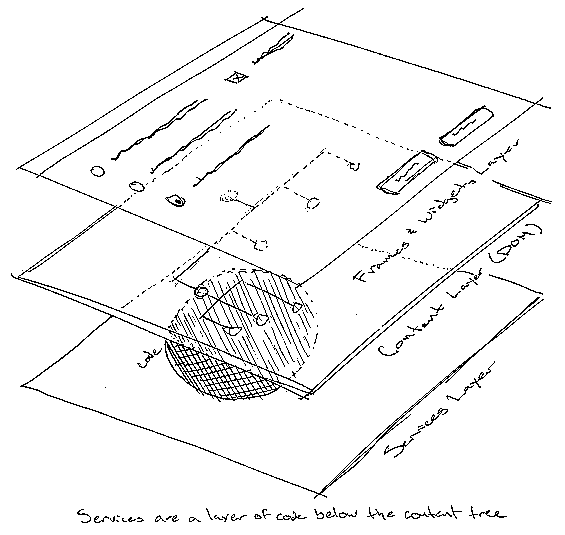 Frames & Widgets Layer
Content Layer (DOM)
code
Services Layer
Services are a layer of code below the content tree